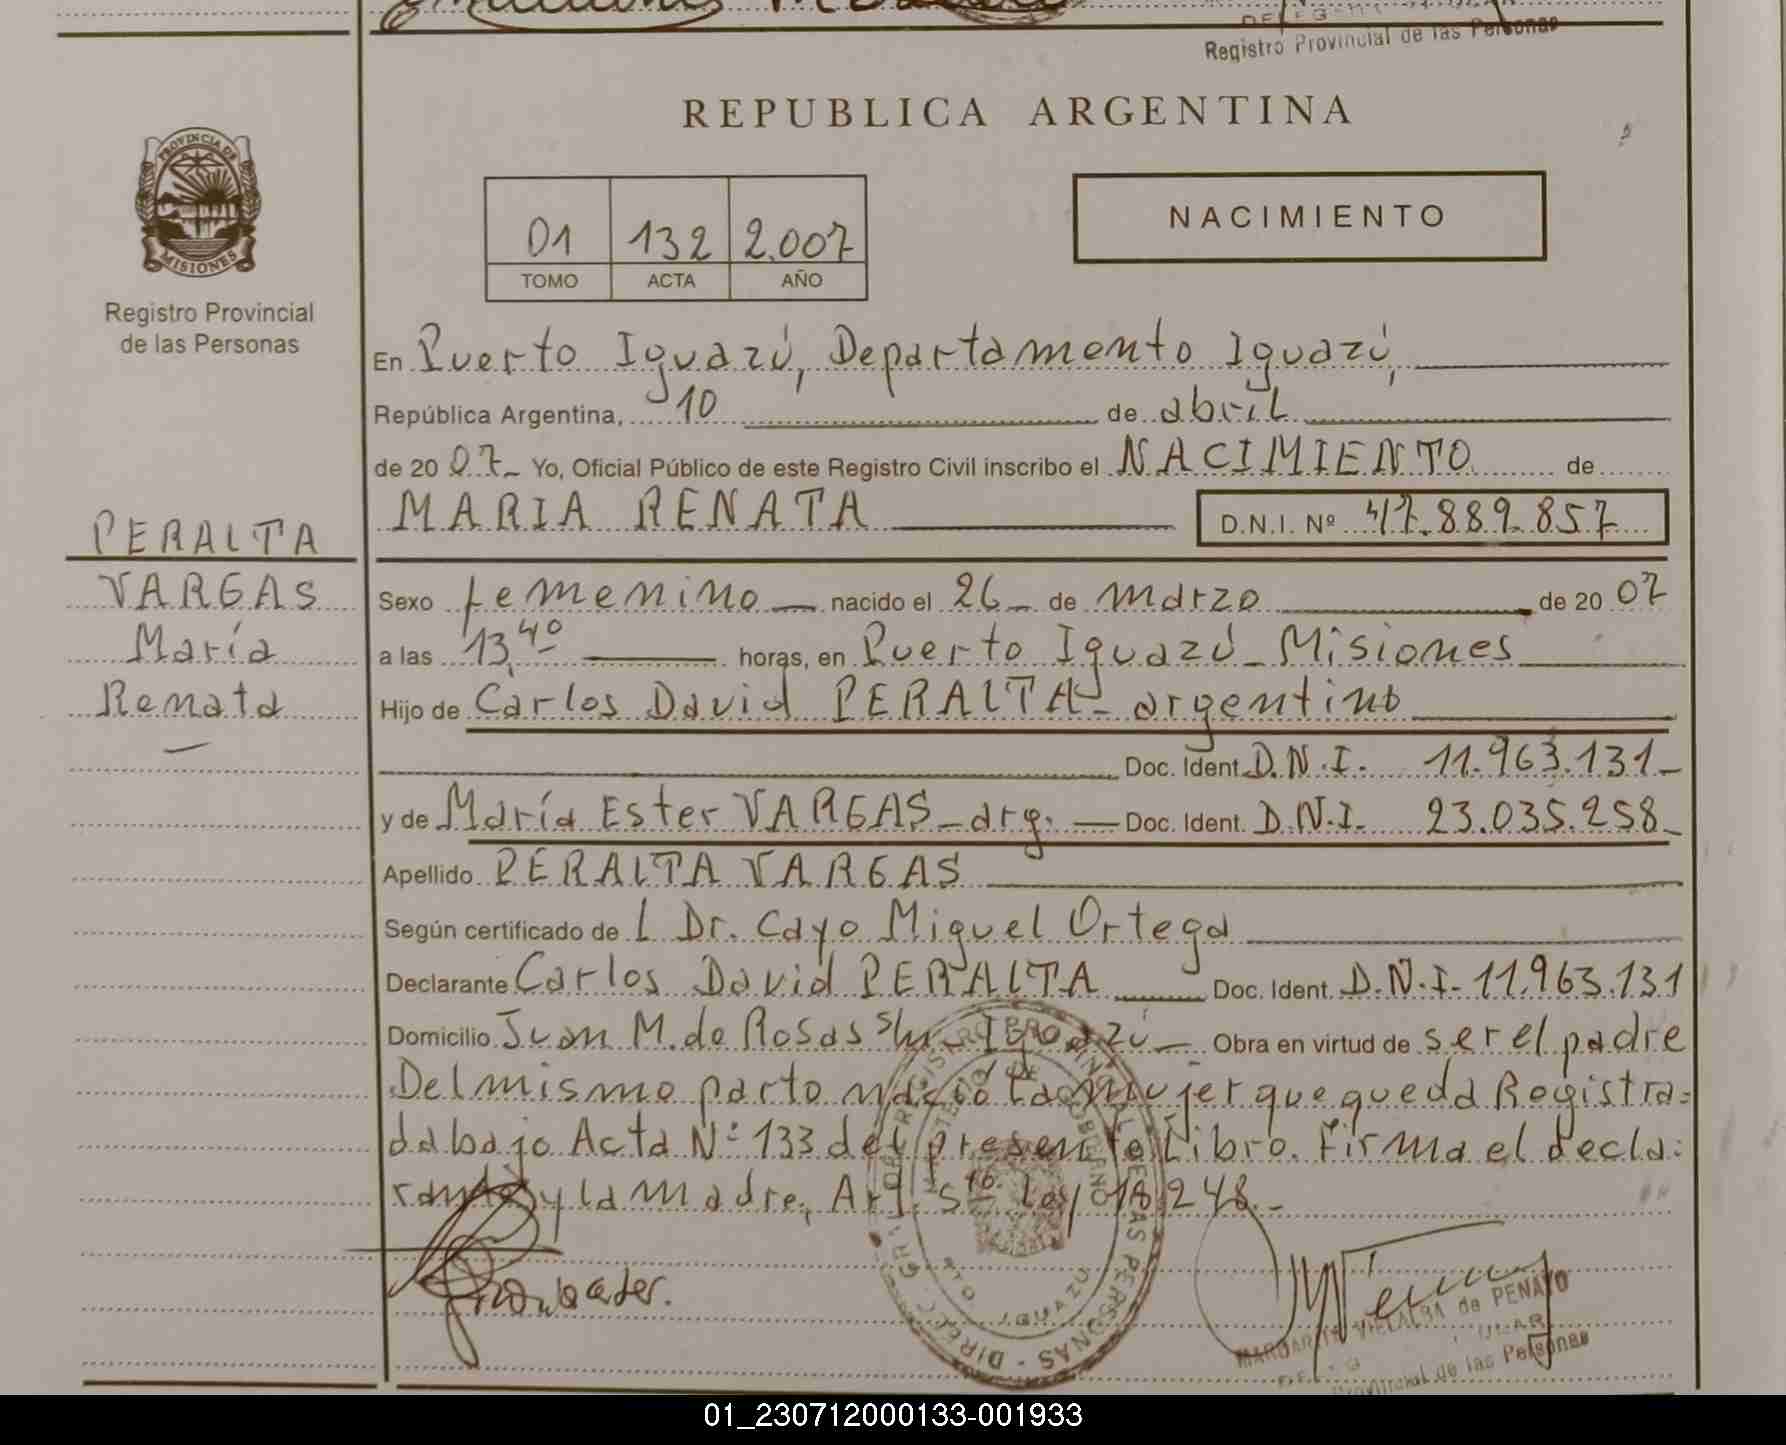 Registro Provincial de las Personas
REPUBLICA ARGENTINA
PROVINCIA DE
MISIONES
Registro Provincial
de las Personas
01 132 2.007
TOMO ACTA AÑO
NACIMIENTO
En Puerto Iguazú, Departamento Iguazú,
República Argentina, 10 de abril
de 20 07 Yo, Oficial Público de este Registro Civil inscribo el NACIMIENTO de
MARIA RENATA D.N.I. Nº 47.889.857
PERALTA
VARGAS
María
Renata
Sexo femenino nacido el 26 de marzo de 20 07
a las 13,40 horas, en Puerto Iguazú - Misiones
Hijo de Carlos David PERALTA - argentino
Doc. Ident. D.N.I. 11.963.131
y de María Ester VARGAS - arg. Doc. Ident. D.N.I. 23.035.258
Apellido PERALTA VARGAS
Según certificado de l Dr. Cayo Miguel Ortega
Declarante Carlos David PERALTA Doc. Ident. D.N.I. 11.963.131
Domicilio Juan M. de Rosas s/nº Iguazú Obra en virtud de ser el padre
Del mismo parto nació la mujer que queda Registra=
da bajo Acta Nº 133 del presente Libro. Firma el decla=
rante y la madre, Art. 5to. Ley 18.248.-
MARGARITA VILLALBA de PENAYO
Provincial de las Personas
01_230712000133-001933